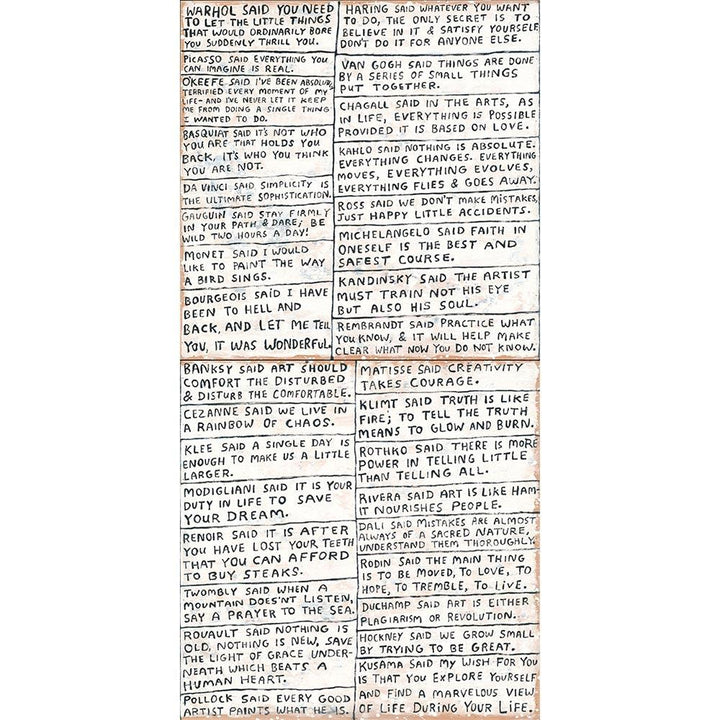 WARHOL SAID YOU NEED
TO LET THE LITTLE THINGS
THAT WOULD ORDINARILY BORE
YOU SUDDENLY THRILL YOU.
PICASSO SAID EVERYTHING YOU
CAN IMAGINE IS REAL.
O'KEEFE SAID I'VE BEEN ABSOLUTELY
TERRIFIED EVERY MOMENT OF MY
LIFE- AND I'VE NEVER LET IT KEEP
ME FROM DOING A SINGLE THING
I WANTED TO DO.
BASQUIAT SAID IT'S NOT WHO
YOU ARE THAT HOLDS YOU
BACK, IT'S WHO YOU THINK
YOU ARE NOT.
DA VINCI SAID SIMPLICITY IS
THE ULTIMATE SOPHISTICATION.
GAUGUIN SAID STAY FIRMLY
IN YOUR PATH & DARE; BE
WILD TWO HOURS A DAY!
MONET SAID I WOULD
LIKE TO PAINT THE WAY
A BIRD SINGS.
BOURGEOIS SAID I HAVE
BEEN TO HELL AND
BACK, AND LET ME TELL
YOU, IT WAS WONDERFUL.
HARING SAID WHATEVER YOU WANT
TO DO, THE ONLY SECRET IS TO
BELIEVE IN IT & SATISFY YOURSELF
DON'T DO IT FOR ANYONE ELSE.
VAN GOGH SAID THINGS ARE DONE
BY A SERIES OF SMALL THINGS
PUT TOGETHER.
CHAGALL SAID IN THE ARTS, AS
IN LIFE, EVERYTHING IS POSSIBLE
PROVIDED IT IS BASED ON LOVE.
KAHLO SAID NOTHING IS ABSOLUTE.
EVERYTHING CHANGES. EVERYTHING
MOVES, EVERYTHING EVOLVES,
EVERYTHING FLIES & GOES AWAY.
ROSS SAID WE DON'T MAKE MISTAKES,
JUST HAPPY LITTLE ACCIDENTS.
MICHELANGELO SAID FAITH IN
ONESELF IS THE BEST AND
SAFEST COURSE.
KANDINSKY SAID THE ARTIST
MUST TRAIN NOT HIS EYE
BUT ALSO HIS SOUL.
REMBRANDT SAID PRACTICE WHAT
YOU KNOW, & IT WILL HELP MAKE
CLEAR WHAT NOW YOU DO NOT KNOW.
BANKSY SAID ART SHOULD
COMFORT THE DISTURBED
& DISTURB THE COMFORTABLE.
CEZANNE SAID WE LIVE IN
A RAINBOW OF CHAOS.
KLEE SAID A SINGLE DAY IS
ENOUGH TO MAKE US A LITTLE
LARGER.
MODIGLIANI SAID IT IS YOUR
DUTY IN LIFE TO SAVE
YOUR DREAM.
RENOIR SAID IT IS AFTER
YOU HAVE LOST YOUR TEETH
THAT YOU CAN AFFORD
TO BUY STEAKS.
TWOMBLY SAID WHEN A
MOUNTAIN DOES'NT LISTEN,
SAY A PRAYER TO THE SEA.
ROUAULT SAID NOTHING IS
OLD, NOTHING IS NEW, SAVE
THE LIGHT OF GRACE UNDER-
NEATH WHICH BEATS A
HUMAN HEART.
POLLOCK SAID EVERY GOOD
ARTIST PAINTS WHAT HE IS.
MATISSE SAID CREATIVITY
TAKES COURAGE.
KLIMT SAID TRUTH IS LIKE
FIRE; TO TELL THE TRUTH
MEANS TO GLOW AND BURN.
ROTHKO SAID THERE IS MORE
POWER IN TELLING LITTLE
THAN TELLING ALL.
RIVERA SAID ART IS LIKE HAM-
IT NOURISHES PEOPLE.
DALI SAID MISTAKES ARE ALMOST
ALWAYS OF A SACRED NATURE,
UNDERSTAND THEM THOROUGHLY.
RODIN SAID THE MAIN THING
IS TO BE MOVED, TO LOVE, TO
HOPE, TO TREMBLE, TO LIVE.
DUCHAMP SAID ART IS EITHER
PLAGIARISM OR REVOLUTION.
HOCKNEY SAID WE GROW SMALL
BY TRYING TO BE GREAT.
KUSAMA SAID MY WISH FOR YOU
IS THAT YOU EXPLORE YOURSELF
AND FIND A MARVELOUS VIEW
OF LIFE DURING YOUR LIFE.